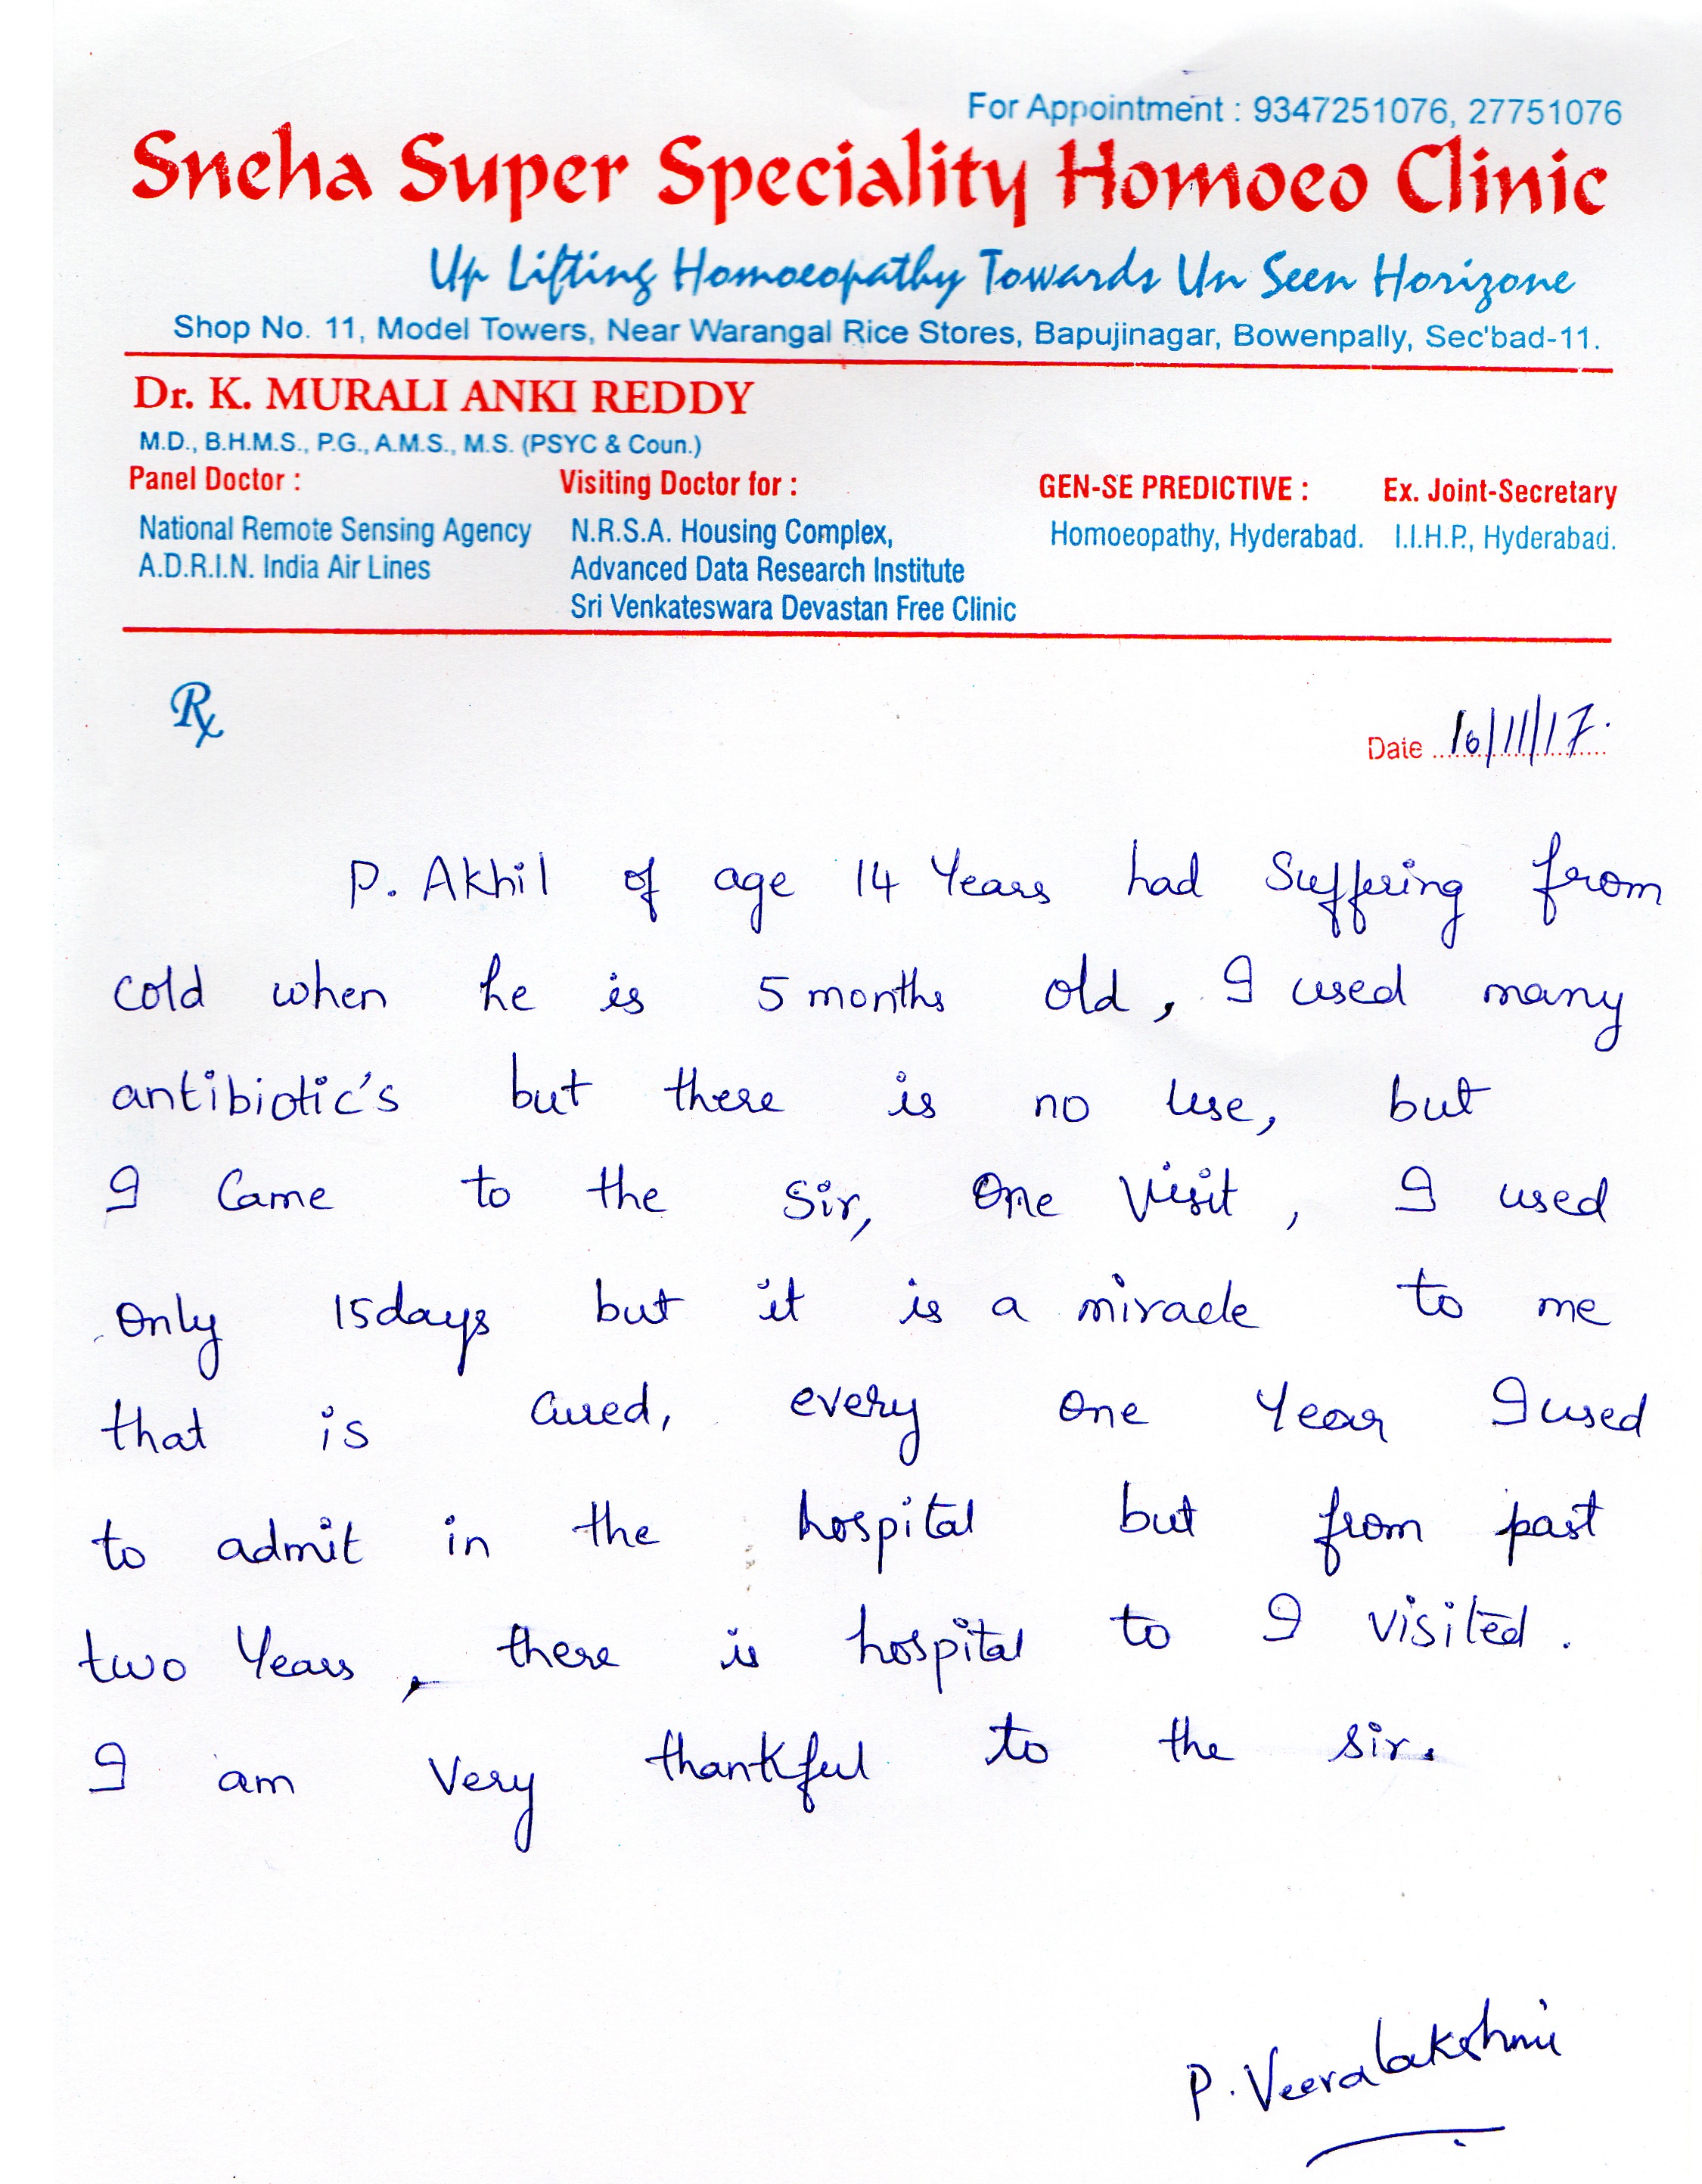 For Appointment : 9347251076, 27751076
Sneha Super Speciality Homoeo Clinic
Up Lifting Homoeopathy Towards Un Seen Horizone
Shop No. 11, Model Towers, Near Warangal Rice Stores, Bapujinagar, Bowenpally, Sec'bad-11.
Dr. K. MURALI ANKI REDDY
M.D., B.H.M.S., P.G., A.M.S., M.S. (PSYC & Coun.)
Panel Doctor : Visiting Doctor for : GEN-SE PREDICTIVE : Ex. Joint-Secretary
National Remote Sensing Agency N.R.S.A. Housing Complex, Homoeopathy, Hyderabad. I.I.H.P., Hyderabad.
A.D.R.I.N. India Air Lines Advanced Data Research Institute
Sri Venkateswara Devastan Free Clinic
Rx
Date 16/11/17.
P. Akhil of age 14 Years had Suffering from
cold when he is 5 months old, I used many
antibiotic's but there is no use, but
I Came to the Sir, One Visit, I used
Only 15days but it is a miracle to me
that is Cured, every One Year I used
to admit in the hospital but from past
two Years, there is hospital to I visited.
I am Very thankful to the sir.
P. Veeralakshmi